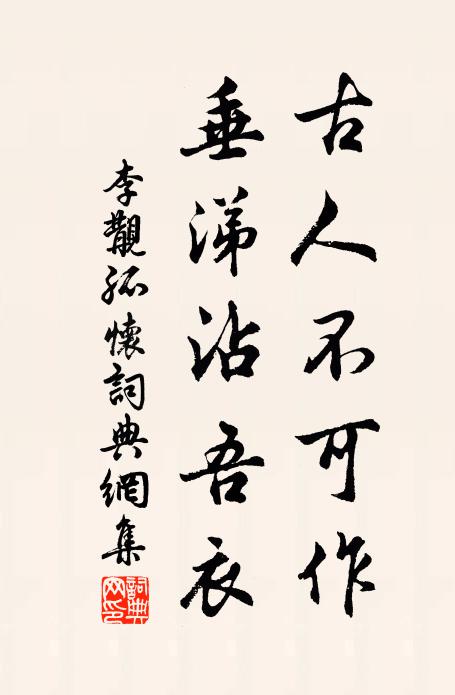 古人不可作
垂涕沾吾衣
李觀孤懷詞典網集
詞典網印